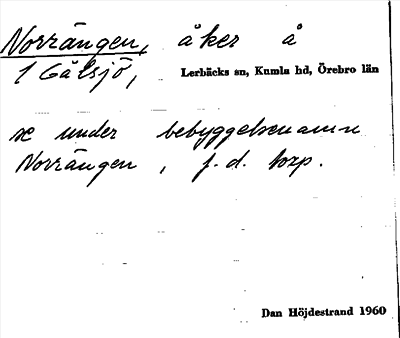 Norrängen, åker å
1 Gålsjö, Lerbäcks sn, Kumla hd, Örebro län
se under bebyggelsenamn
Norrängen, f.d. torp.
Dan Höjdestrand 1960